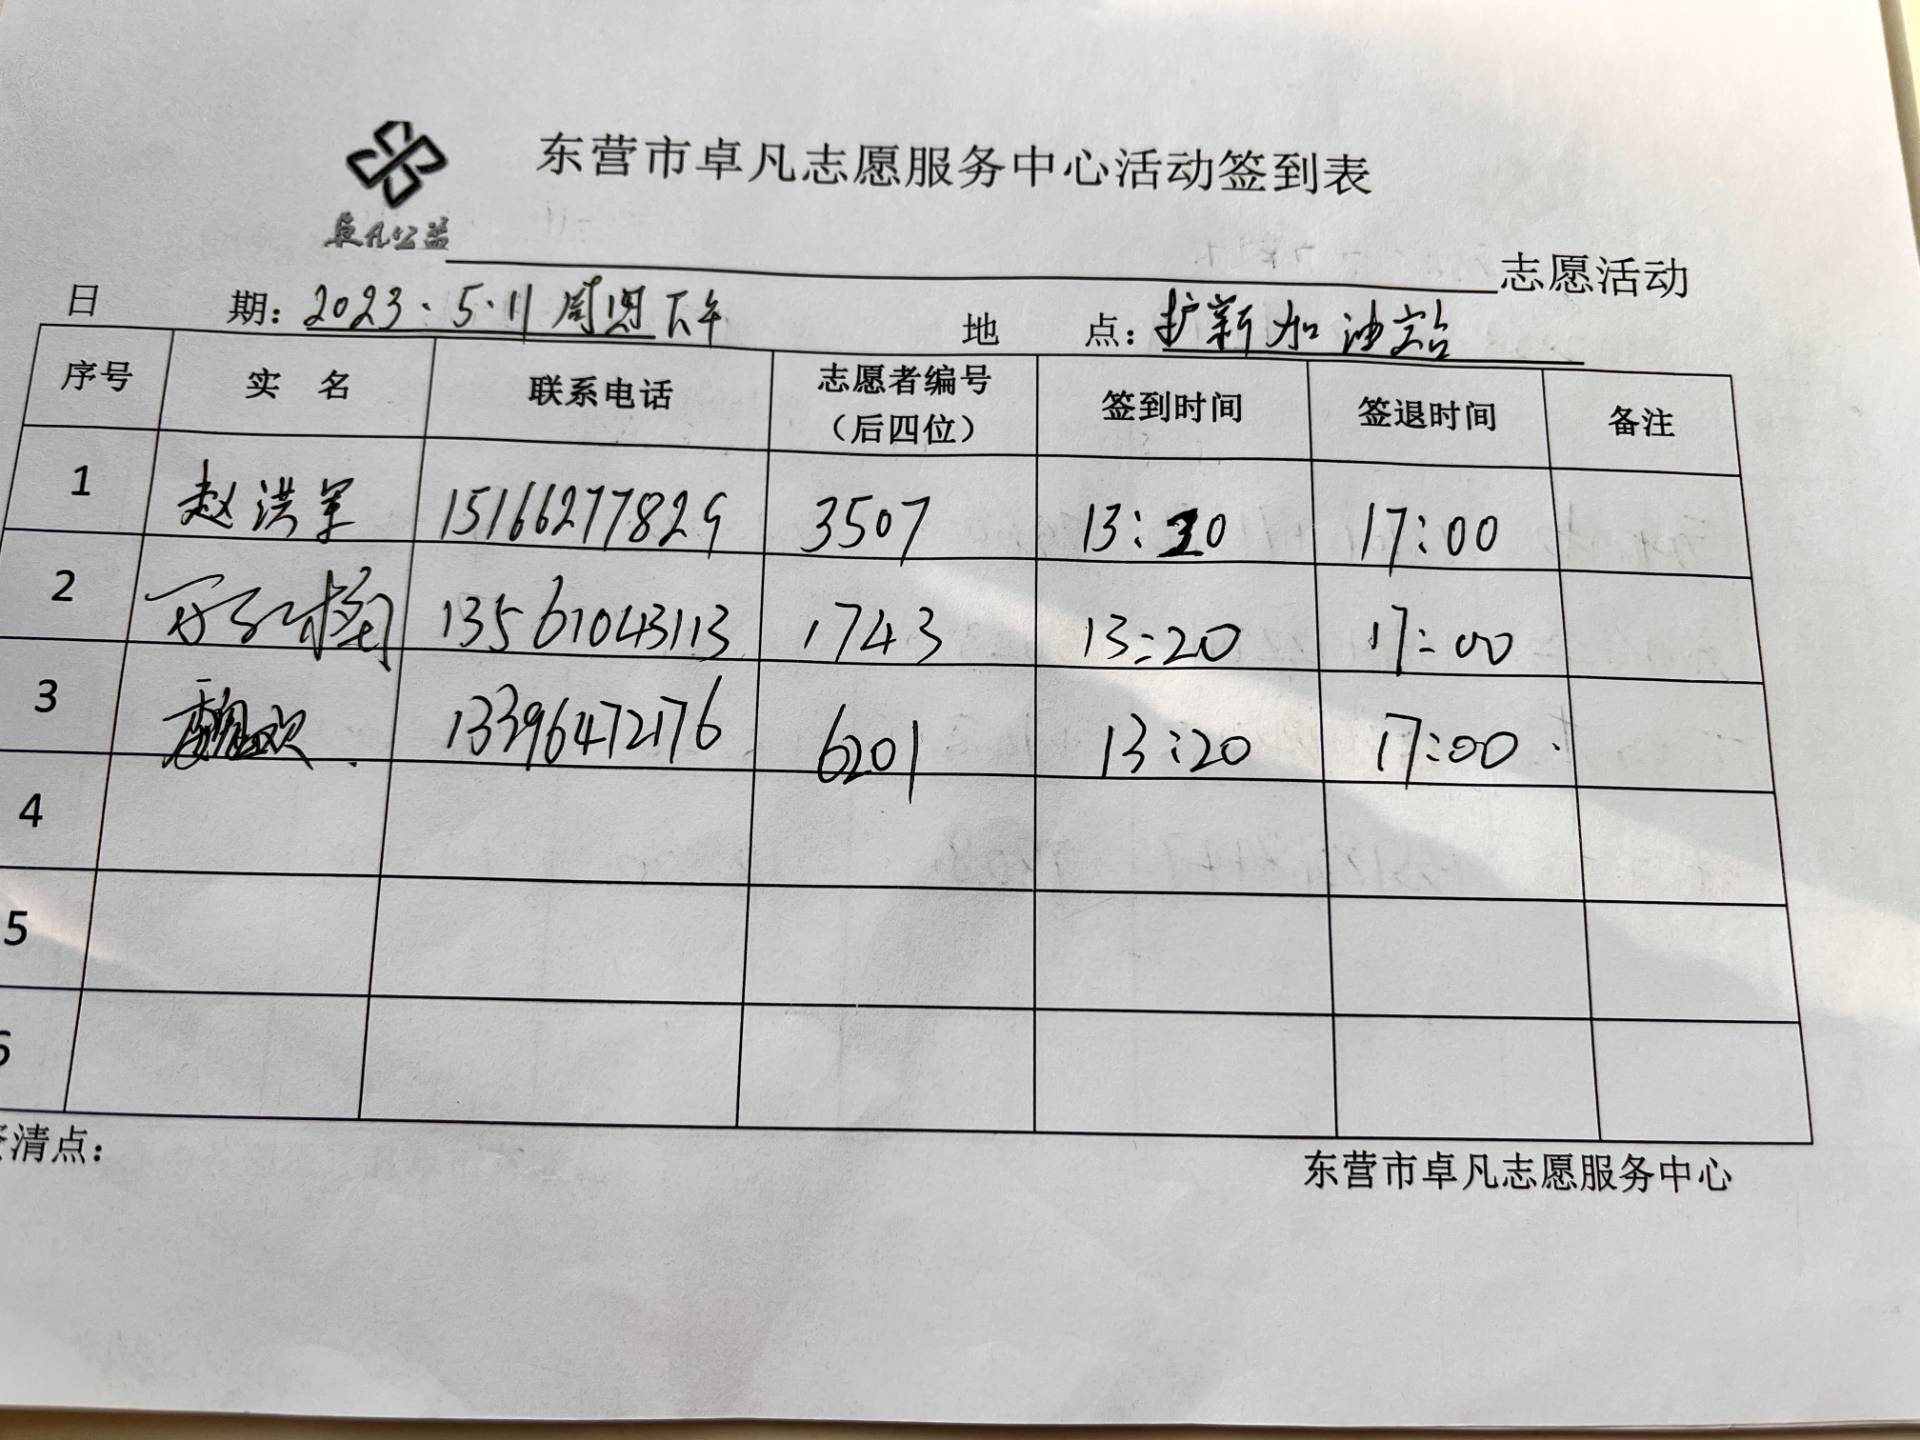 东营市卓凡志愿服务中心活动签到表
卓凡公益
志愿活动
日 期: 2023.5.11 周四下午 地 点: 扩新加油站
序号 实 名 联系电话 志愿者编号（后四位） 签到时间 签退时间 备注
1 赵洪军 15166277829 3507 13:20 17:00
2 13561043113 1743 13:20 17:00
3 13396472176 6201 13:20 17:00
4
5
6
清点:
东营市卓凡志愿服务中心